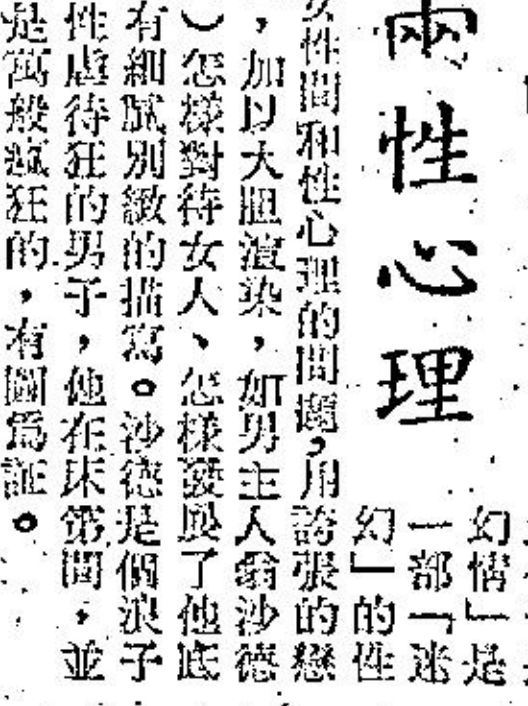 兩性心理
幻情」是
一部「迷
幻」的性
女性間和性心理的問題,用誇張的戀
,加以大胆渲染,如男主人翁沙德
)怎樣對待女人、怎樣發展了他底
有細膩別緻的描寫。沙德是個浪子
性虐待狂的男子,他在床笫間,並
是寫般瘋狂的,有圖爲証。